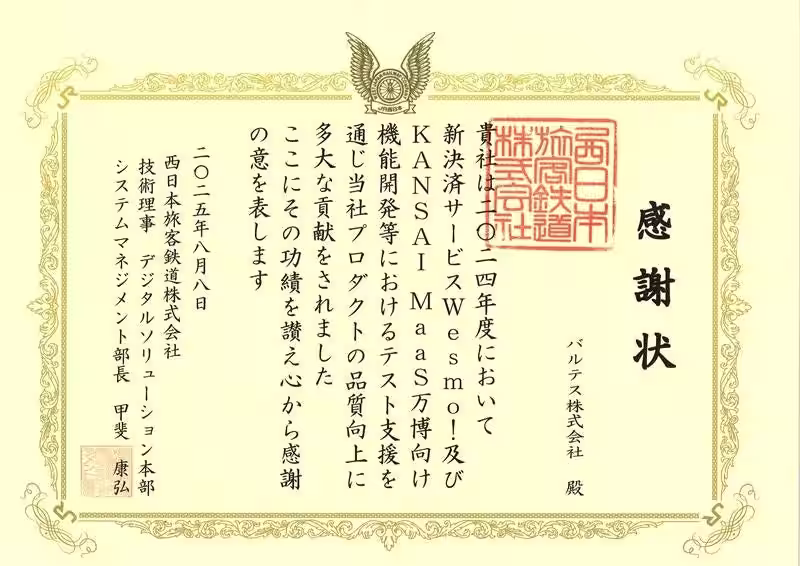 感謝状
バルテス株式会社 殿
西日本
旅客鉄道
株式会社
貴社は二〇二四年度において
新決済サービスWesmo!及び
KANSAI MaaS万博向け
機能開発等におけるテスト支援を
通じ当社プロダクトの品質向上に
多大な貢献をされました
ここにその功績を讃え心から感謝
の意を表します
二〇二五年八月八日
西日本旅客鉄道株式会社
技術理事 デジタルソリューション本部
システムマネジメント部長 甲斐 康弘
JR西日本